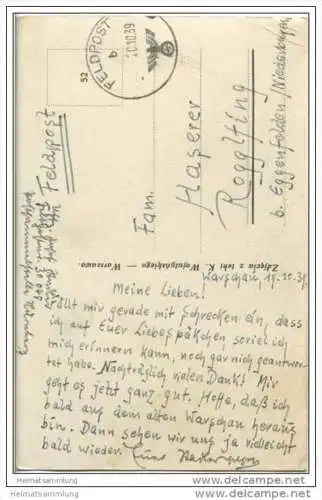 FELDPOST
b
20.10.39
52
Feldpost
Fam.
Haserer
Rogglfing
b. Eggenfelden/Niederbayern
Zdjęcia z teki K. Wojutyńskiego — Warszawa.
Warschau, 19.10.39.
Meine Lieben!
Fällt mir gerade mit Schrecken ein, dass
ich auf Euer Liebespäkchen, soviel ich
mich erinnern kann, noch gar nich geantwor-
tet habe. Nachträglich vielen Dank! Mir
geht es jetzt ganz gut. Hoffe, daß ich
bald aus dem alten Warschau heraus
bin. Dann sehen wir uns ja vielleicht
bald wieder. Euer
Heimatsammlung
Heimatsammlung
www.delcampe.net